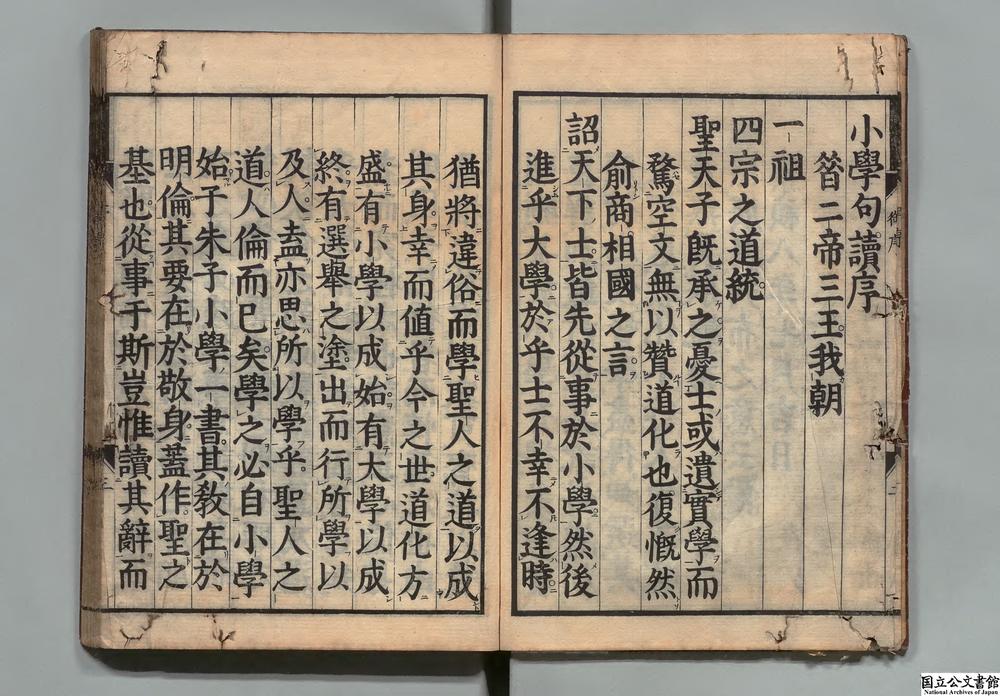 小學句讀序
昝二帝三王我朝
一祖
四宗之道統
聖天子旣承之憂士或遺實學而
騖空文無以贊道化也復慨然
俞商相國之言
詔天下士皆先從事於小學然後
進乎大學於乎士不幸不逢時
猶將違俗而學聖人之道以成
其身幸而値乎今之世道化方
盛有小學以成始有大學以成
終有選舉之塗出而行所學以
及人盍亦思所以學乎聖人之
道人倫而已矣學之必自小學
始子朱子小學一書其敎在於
明倫其要在於敬身蓋作聖之
基也從事于斯豈惟讀其辭而
国立公文書館
National Archives of Japan